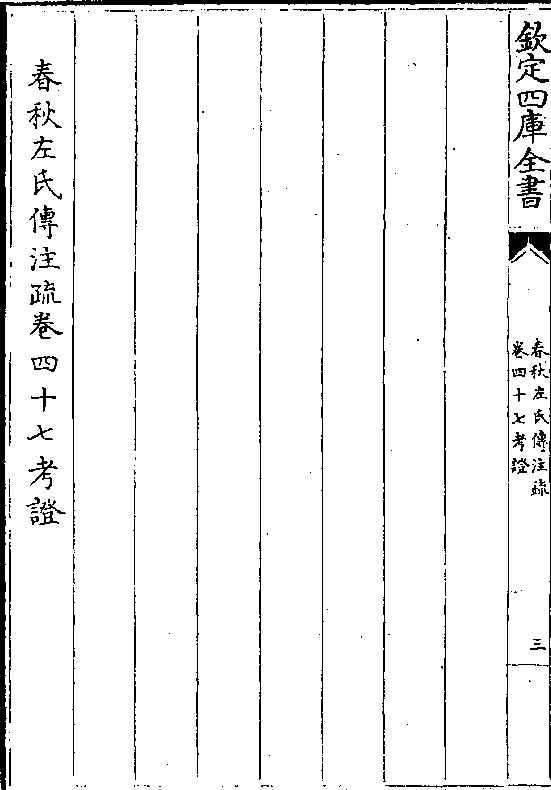 欽定四庫全書
春秋左氏傳注疏
卷四十七考證
三
春秋左氏傳注疏卷四十七考證